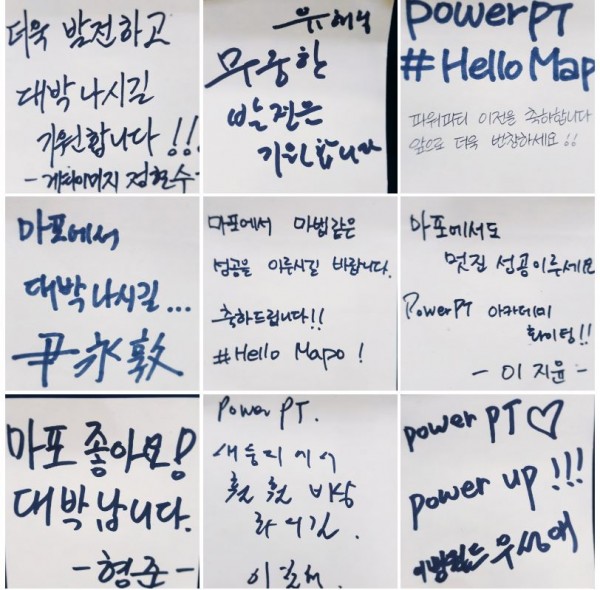 더욱 발전하고
대박나시길
기원합니다!!
- 게티이미지 정현수 -
무궁한
발전을
기원합니다
PowerPT
#Hello Map
파워피티 이전을 축하합니다
앞으로 더욱 번창하세요!!
마포에서
대박나시길...
尹永敦
마포에서 마법같은
성공을 이루시길 바랍니다.
축하드립니다!!
#Hello Mapo!
마포에서도
멋진 성공이루세요
PowerPT 아카데미
화이팅!!
- 이지윤 -
마포 좋아요!
대박납니다.
- 형준 -
Power PT.
새둥지에서
훨훨 비상
하시길.
power PT♡
power up!!!